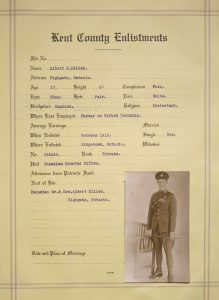 Kent County Enlistments
File No
Name Albert E. Hillar.
Address Highgate, Ontario.
Age Height Complexion Fair.
Eyes Blue. Hair Fair. Race White.
Birthplace England. Religion Protestant.
Where Last Employed Farmer in Oxford Township.
Average Earnings Married
When Enlisted October 1915. Single Yes.
Where Enlisted Ridgetown, Ontario. Widower
No. Rank Private.
Unit Canadian Mounted Rifles.
Allowance from Patriotic Fund
Next of Kin
Parents: Mr. & Mrs. Albert Hillar.
Highgate, Ontario.
Date and Place of Marriage